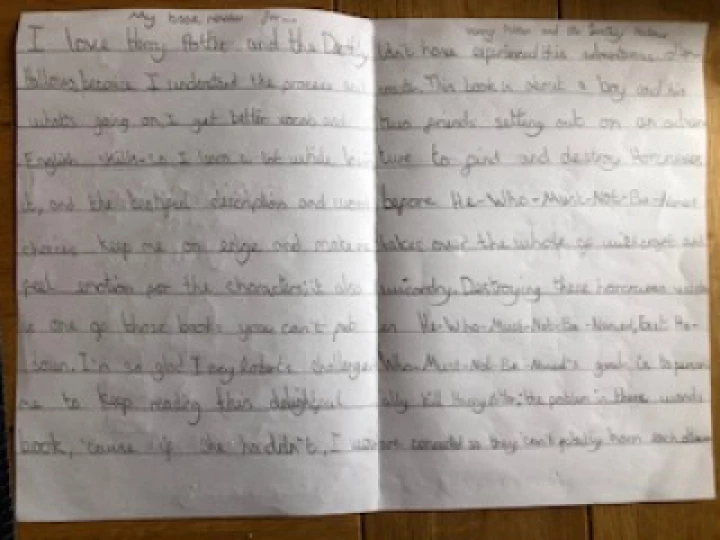 My book review for...
I love Harry Potter and the Deathly
Hallows because I understand the process and
what's going on, I get better vocab and
English skills - so I learn a lot while
it, and the description and word
choices keep me on edge and makes me
feel emotion for the characters; it also
is one of those books you can't put
down. I'm so glad challenged
me to keep reading this delightful
book, 'cause if she hadn't, I
Harry Potter and the Deathly Hallows
have experienced this adventurous
This book is about a boy and his
two friends setting out on an adven
ture to find and destroy Horcruxes
before He-Who-Must-Not-Be-Named
takes over the whole of witchcraft and
wizardry. Destroying these horcruxes
He-Who-Must-Not-Be-Named, but He-
Who-Must-Not-Be-Named's goal is to person
ally kill the problem is there wands
are connected so they can't actually harm each other